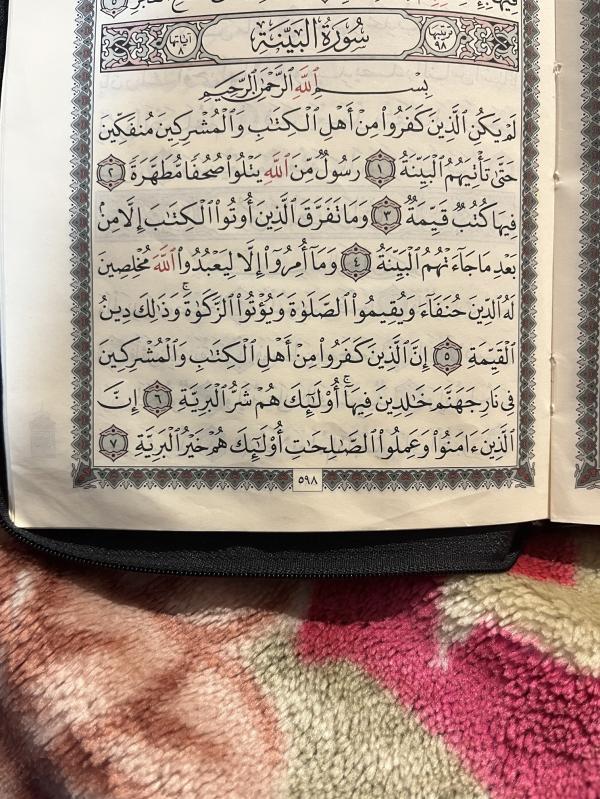 آياتها ٨ سُورَةُ الْبَيِّنَة ترتيبها ٩٨
بِسْمِ ٱللَّهِ ٱلرَّحْمَٰنِ ٱلرَّحِيمِ
لَمْ يَكُنِ ٱلَّذِينَ كَفَرُوا۟ مِنْ أَهْلِ ٱلْكِتَٰبِ وَٱلْمُشْرِكِينَ مُنفَكِّينَ
حَتَّىٰ تَأْتِيَهُمُ ٱلْبَيِّنَةُ ١ رَسُولٌ مِّنَ ٱللَّهِ يَتْلُوا۟ صُحُفًا مُّطَهَّرَةً ٢
فِيهَا كُتُبٌ قَيِّمَةٌ ٣ وَمَا تَفَرَّقَ ٱلَّذِينَ أُوتُوا۟ ٱلْكِتَٰبَ إِلَّا مِنۢ
بَعْدِ مَا جَآءَتْهُمُ ٱلْبَيِّنَةُ ٤ وَمَآ أُمِرُوٓا۟ إِلَّا لِيَعْبُدُوا۟ ٱللَّهَ مُخْلِصِينَ
لَهُ ٱلدِّينَ حُنَفَآءَ وَيُقِيمُوا۟ ٱلصَّلَوٰةَ وَيُؤْتُوا۟ ٱلزَّكَوٰةَ ۚ وَذَٰلِكَ دِينُ
ٱلْقَيِّمَةِ ٥ إِنَّ ٱلَّذِينَ كَفَرُوا۟ مِنْ أَهْلِ ٱلْكِتَٰبِ وَٱلْمُشْرِكِينَ
فِى نَارِ جَهَنَّمَ خَٰلِدِينَ فِيهَآ ۚ أُو۟لَٰٓئِكَ هُمْ شَرُّ ٱلْبَرِيَّةِ ٦ إِنَّ
ٱلَّذِينَ ءَامَنُوا۟ وَعَمِلُوا۟ ٱلصَّٰلِحَٰتِ أُو۟لَٰٓئِكَ هُمْ خَيْرُ ٱلْبَرِيَّةِ ٧
٥٩٨